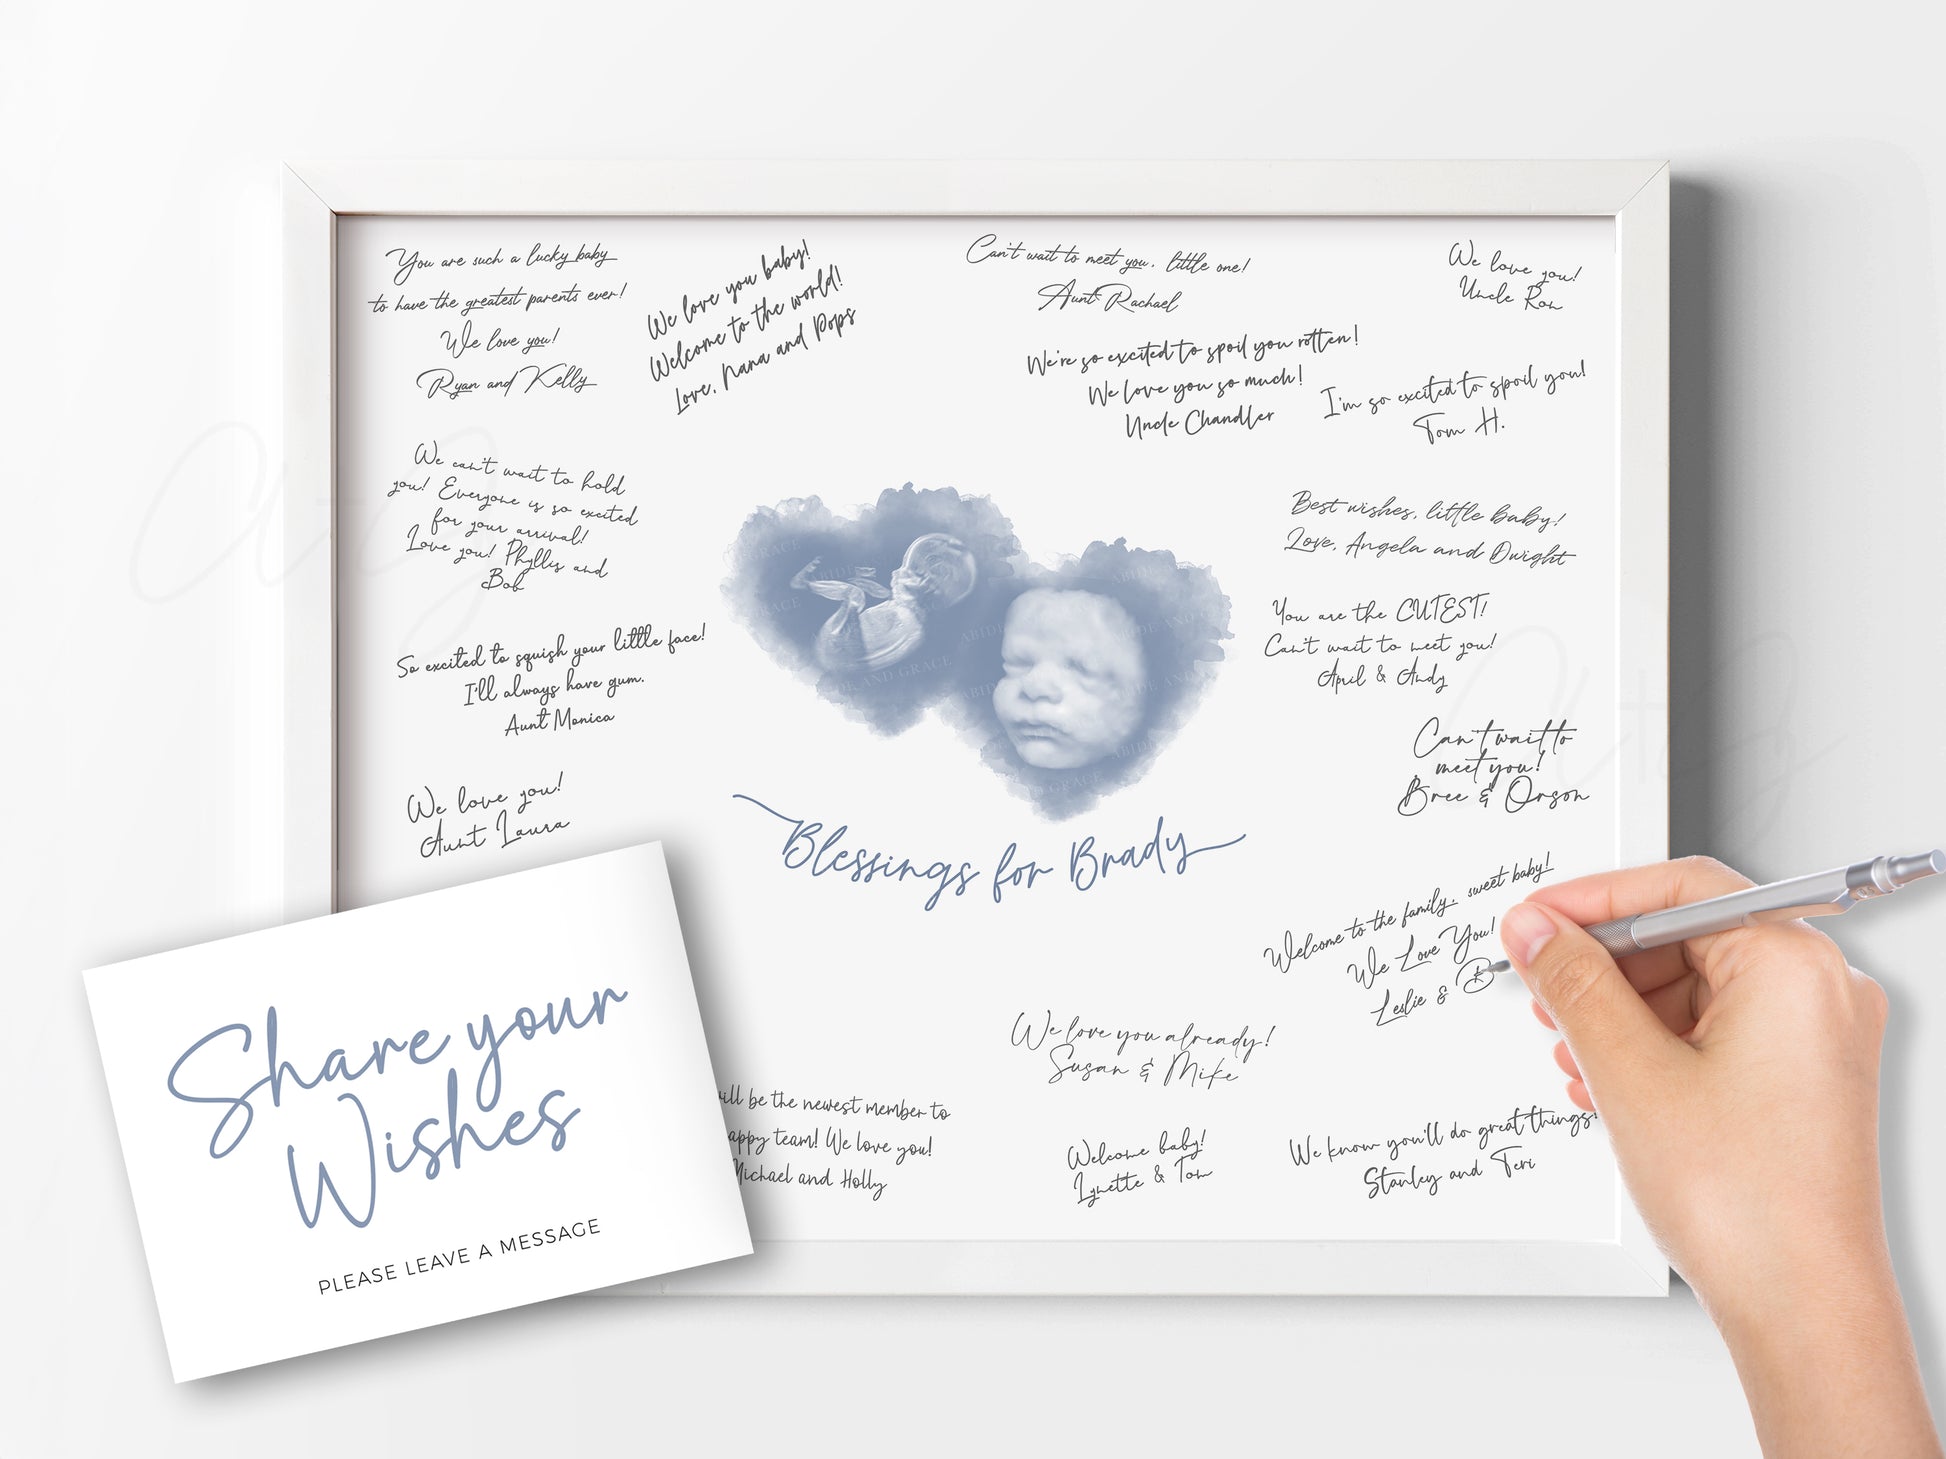 You are such a lucky baby
to have the greatest parents ever!
We love you!
Ryan and Kelly
We love you baby!
Welcome to the world!
Love, Nana and Pops
Can't wait to meet you, little one!
Aunt Rachael
We love you!
Uncle Ron
We're so excited to spoil you rotten!
We love you so much!
Uncle Chandler
I'm so excited to spoil you!
Tom H.
We can't wait to hold
you! Everyone is so excited
for your arrival!
Love you! Phyllis and
Bob
Best wishes, little baby!
Love, Angela and Dwight
You are the CUTEST!
Can't wait to meet you!
April & Andy
So excited to squish your little face!
I'll always have gum.
Aunt Monica
Can't wait to
meet you!
Bree & Orson
We love you!
Aunt Laura
ABIDE AND GRACE
Blessings for Brady
Welcome to the family, sweet baby!
We Love You!
Leslie & B
We love you already!
Susan & Mike
will be the newest member to
appy team! We love you!
Michael and Holly
Welcome baby!
Lynette & Tom
We know you'll do great things!
Stanley and Teri
Share your
Wishes
PLEASE LEAVE A MESSAGE